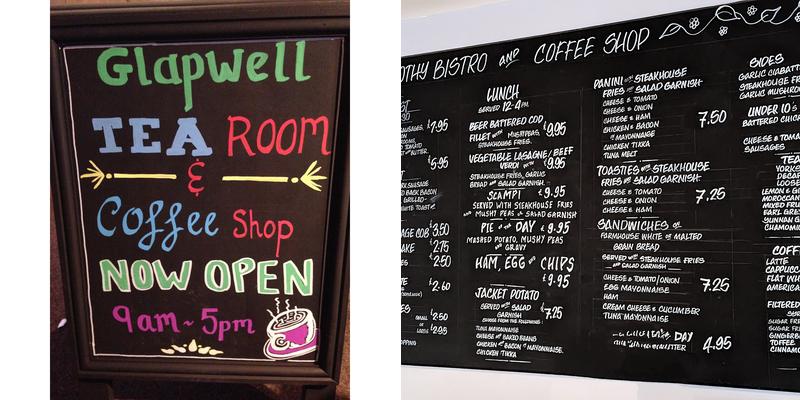 Glapwell
TEA ROOM
&
Coffee Shop
NOW OPEN
9am ~ 5pm
OTHY BISTRO AND COFFEE SHOP
7.95
5.95
3.50
2.75
2.50
2.60
LUNCH
SERVED 12-4PM
BEER BATTERED COD
FILLET WITH MUSHY PEAS, £9.95
STEAKHOUSE FRIES.
VEGETABLE LASAGNE/BEEF
£9.95
STEAKHOUSE FRIES, GARLIC
BREAD AND SALAD GARNISH
SCAMPI £9.95
SERVED WITH STEAKHOUSE FRIES
AND MUSHY PEAS OR SALAD GARNISH
PIE OF THE DAY £9.95
MASHED POTATO, MUSHY PEAS
AND GRAVY
HAM, EGG AND CHIPS
£9.95
JACKET POTATO
SERVED WITH SALAD
GARNISH £7.25
CHOOSE FROM THE FOLLOWING:
TUNA MAYONNAISE
CHEESE AND BAKED BEANS
CHICKEN AND BACON IN MAYONNAISE
CHICKEN TIKKA
PANINI WITH STEAKHOUSE
FRIES AND SALAD GARNISH
CHEESE & TOMATO
CHEESE & ONION
CHEESE & HAM 7.50
CHICKEN & BACON
IN MAYONNAISE
CHICKEN TIKKA
TUNA MELT
TOASTIES WITH STEAKHOUSE
FRIES AND SALAD GARNISH
CHEESE & TOMATO
CHEESE & ONION 7.25
CHEESE & HAM
SANDWICHES ON
FARMHOUSE WHITE OR MALTED
GRAIN BREAD
SERVED WITH STEAKHOUSE FRIES
AND SALAD GARNISH
CHEESE & TOMATO/ONION
EGG MAYONNAISE 7.25
HAM
CREAM CHEESE & CUCUMBER
TUNA MAYONNAISE
DAY
4.95
SIDES
GARLIC CIABATT
STEAKHOUSE F
GARLIC MUSHRO
UNDER 10'S
BATTERED CHICK
CHEESE & TOMA
SAUSAGES
COFF
LATTE
CAPPUCC
FLAT WH
AMERICA
FILTERED
SYRUP
SUGAR FRE
SUGAR FRE
GINGERB
TOFFEE
CINNAMO